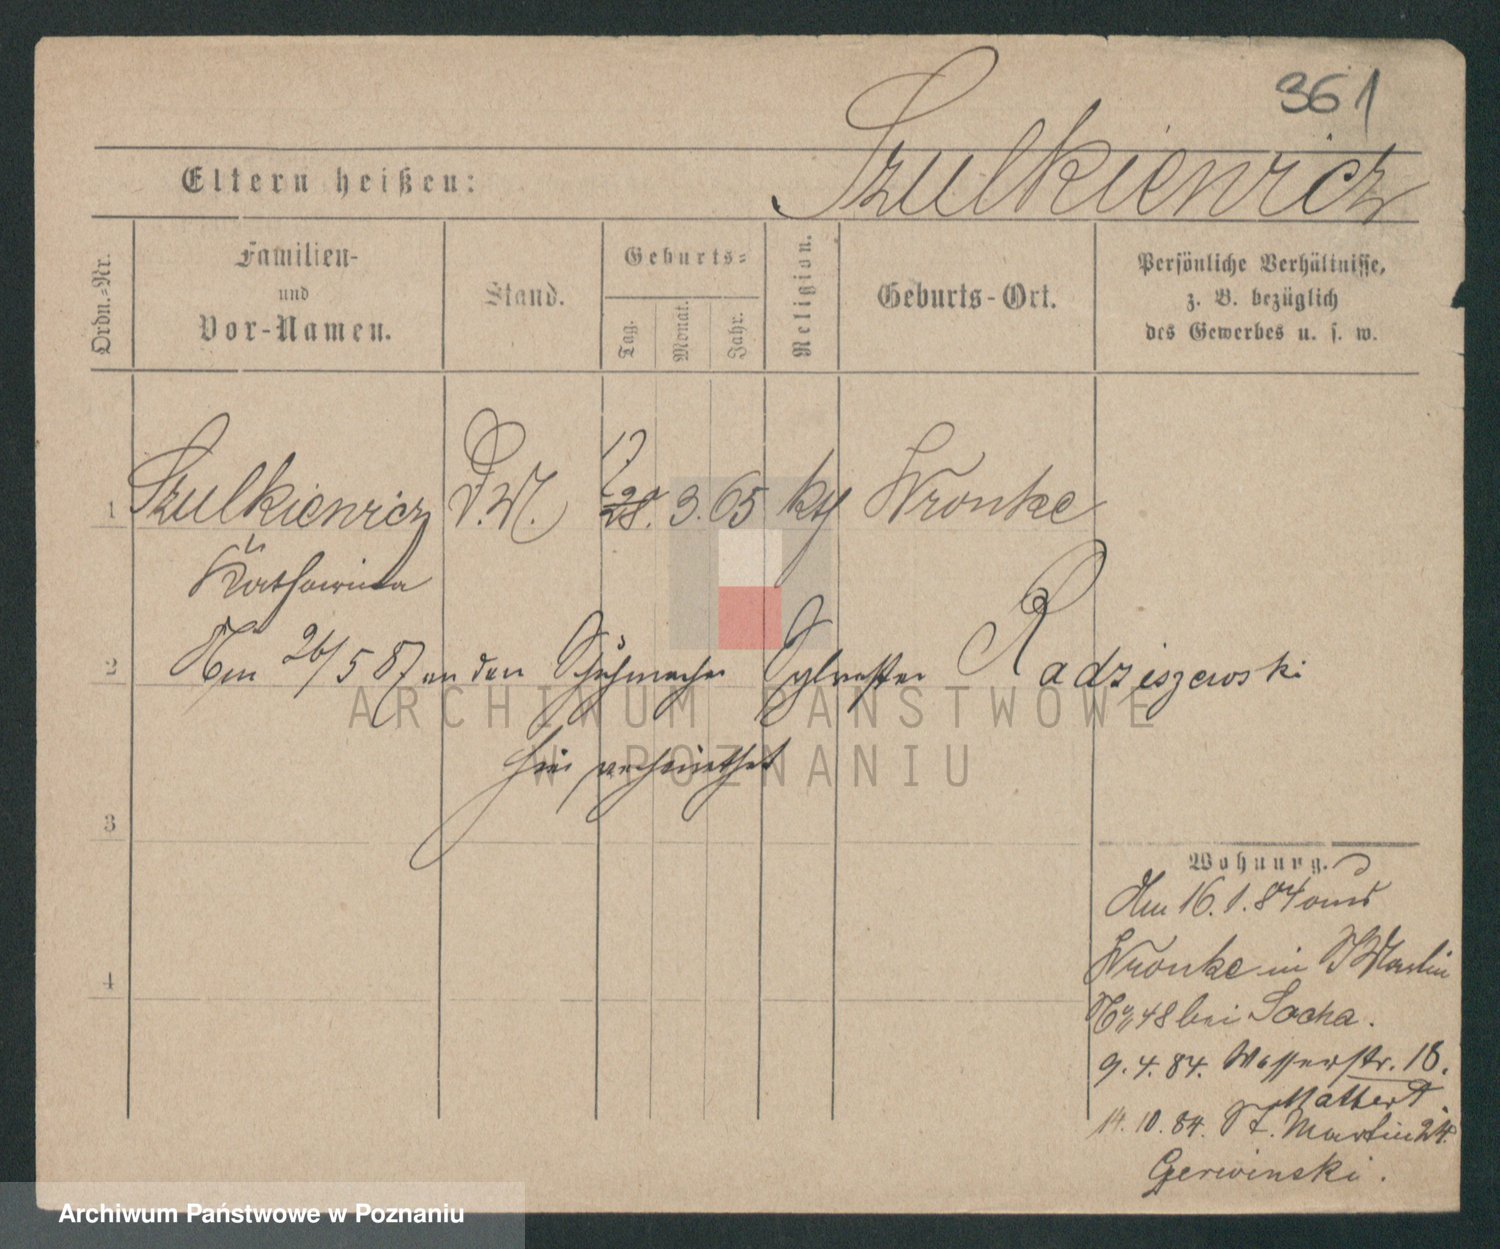 361
Szulkiewicz
Eltern heißen:
Ordn.-Nr.
Familien-
und
Vor-Namen.
Stand.
Geburts-
Tag.
Monat.
Jahr.
Religion.
Geburts-Ort.
Persönliche Verhältnisse,
z. B. bezüglich
des Gewerbes u. s. w.
1 Szulkiewicz D.M. 3. 65 kth Wronke
Katharina
2 26/5 87 an den Schuhmacher Sylvester Radziszewski
hier verheirathet
3
Wohnung.
Am 16. 1. 84 aus
Wronke in St Martin
No 48 bei Socha.
4
9. 4. 84. Wasserstr. 18.
Mattert
14. 10. 84. St. Martin 24.
Gerwinski.
ARCHIWUM PAŃSTWOWE
W POZNANIU
Archiwum Państwowe w Poznaniu